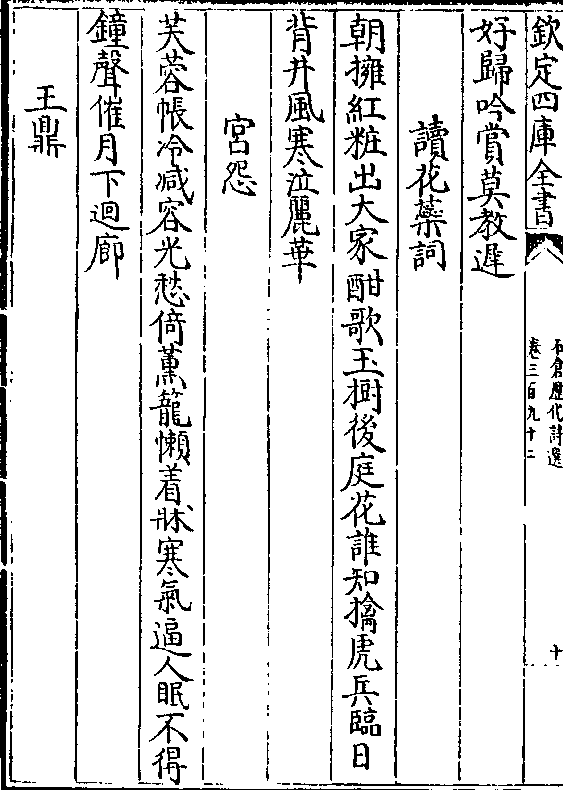 欽定四庫全書
石倉歷代詩選
卷三百九十二
十
好歸吟賞莫教遲
讀花蘂詞
朝擁紅粧出大家酣歌玉樹後庭花誰知擒虎兵臨日
背井風寒泣麗華
宮怨
芙蓉帳冷减容光愁倚薰籠懶着牀寒氣逼人眠不得
鐘聲催月下迴廊
王鼎